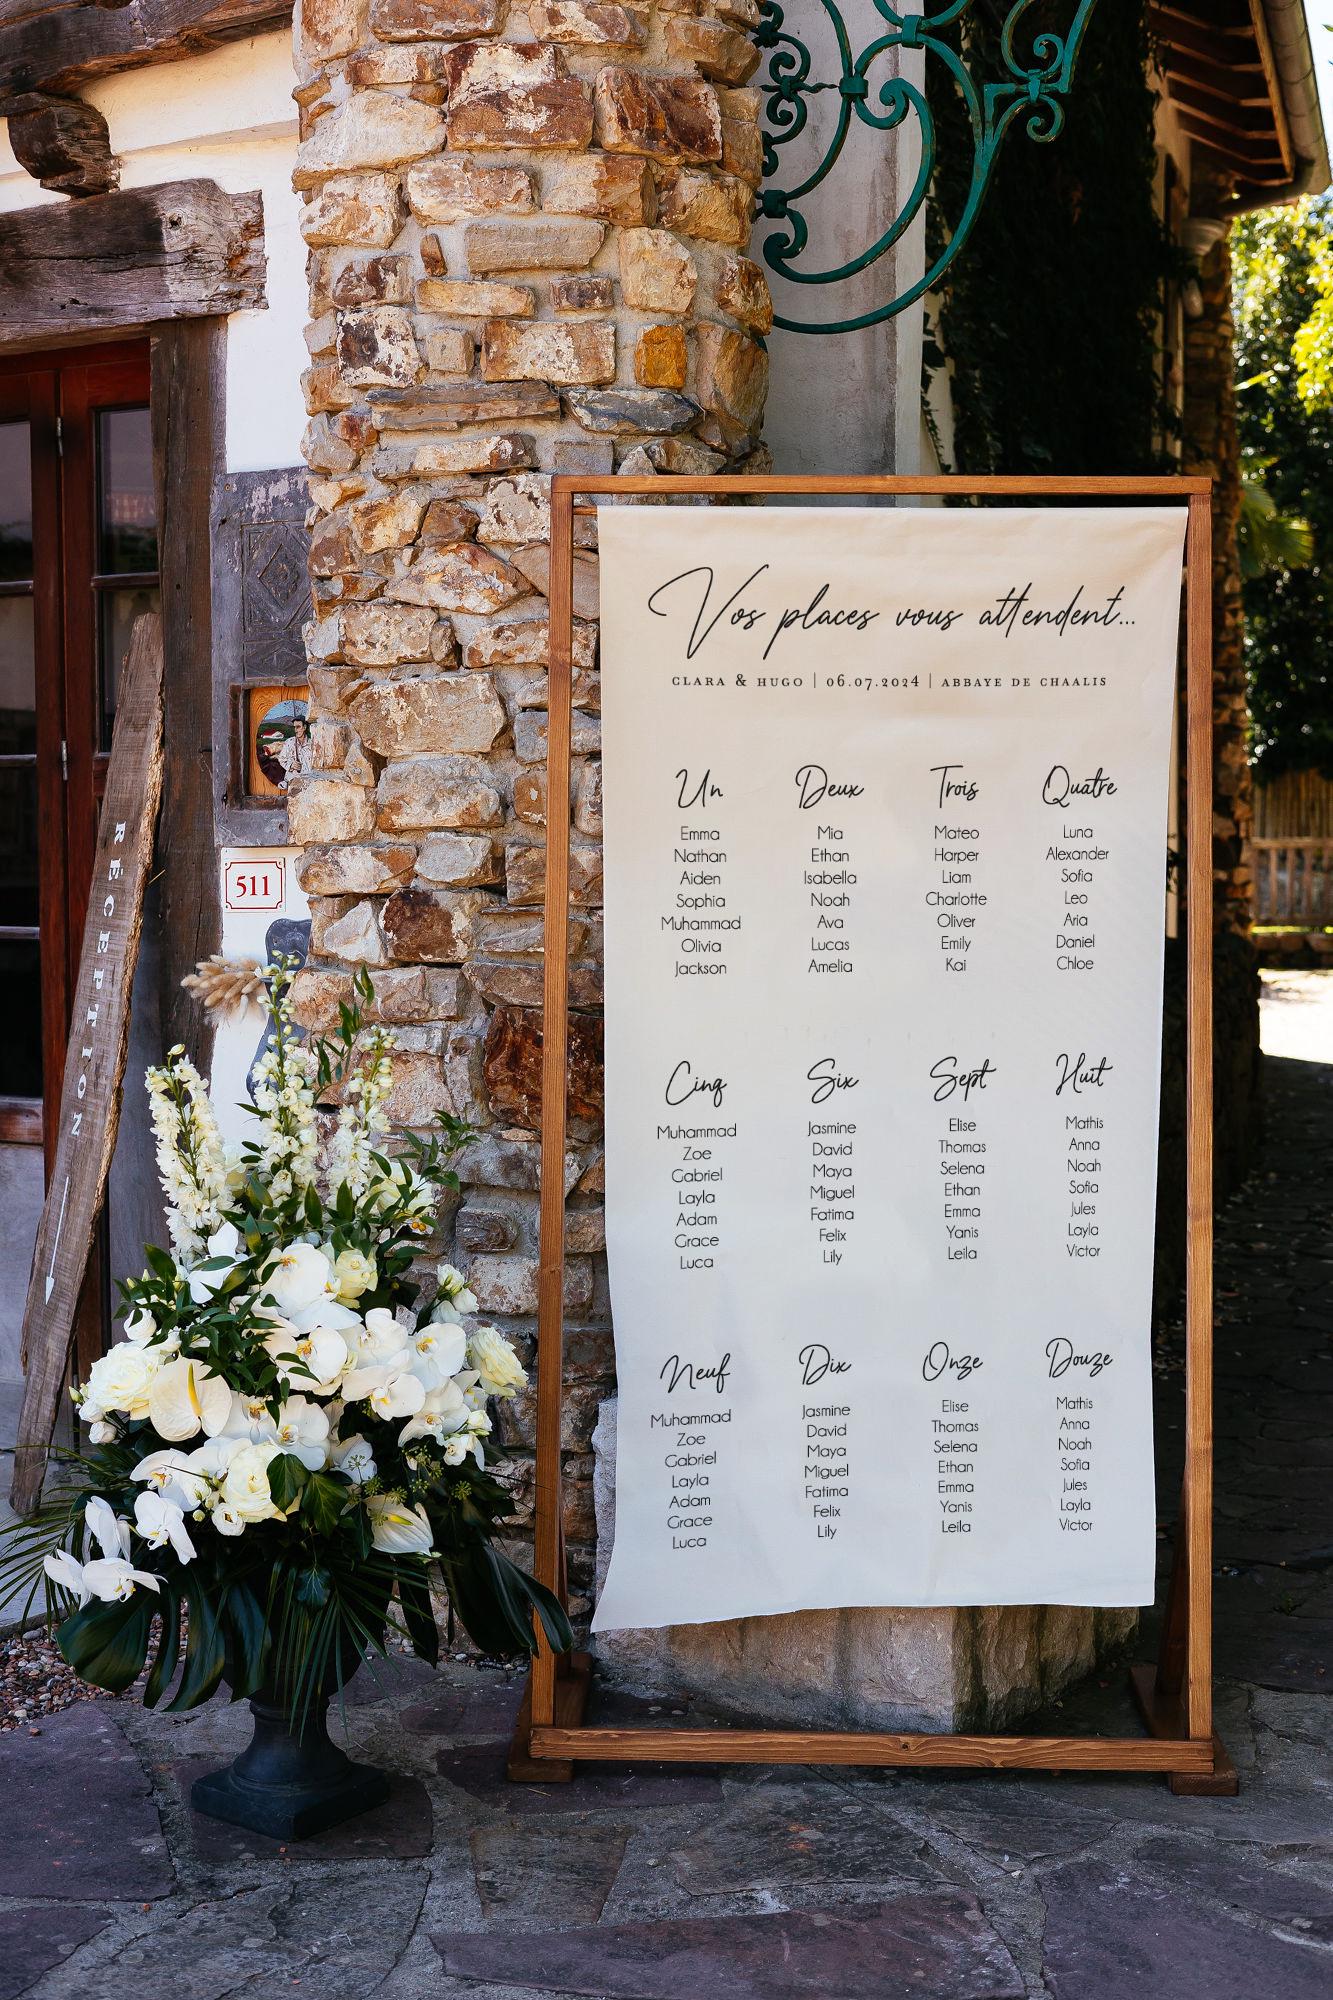 Vos places vous attendent...
CLARA & HUGO | 06.07.2024 | ABBAYE DE CHAALIS
Un
Emma
Nathan
Aiden
Sophia
Muhammad
Olivia
Jackson
Deux
Mia
Ethan
Isabella
Noah
Ava
Lucas
Amelia
Trois
Mateo
Harper
Liam
Charlotte
Oliver
Emily
Kai
Quatre
Luna
Alexander
Sofia
Leo
Aria
Daniel
Chloe
Cinq
Muhammad
Zoe
Gabriel
Layla
Adam
Grace
Luca
Six
Jasmine
David
Maya
Miguel
Fatima
Felix
Lily
Sept
Elise
Thomas
Selena
Ethan
Emma
Yanis
Leila
Huit
Mathis
Anna
Noah
Sofia
Jules
Layla
Victor
Neuf
Muhammad
Zoe
Gabriel
Layla
Adam
Grace
Luca
Dix
Jasmine
David
Maya
Miguel
Fatima
Felix
Lily
Onze
Elise
Thomas
Selena
Ethan
Emma
Yanis
Leila
Douze
Mathis
Anna
Noah
Sofia
Jules
Layla
Victor
511
RÉCEPTION